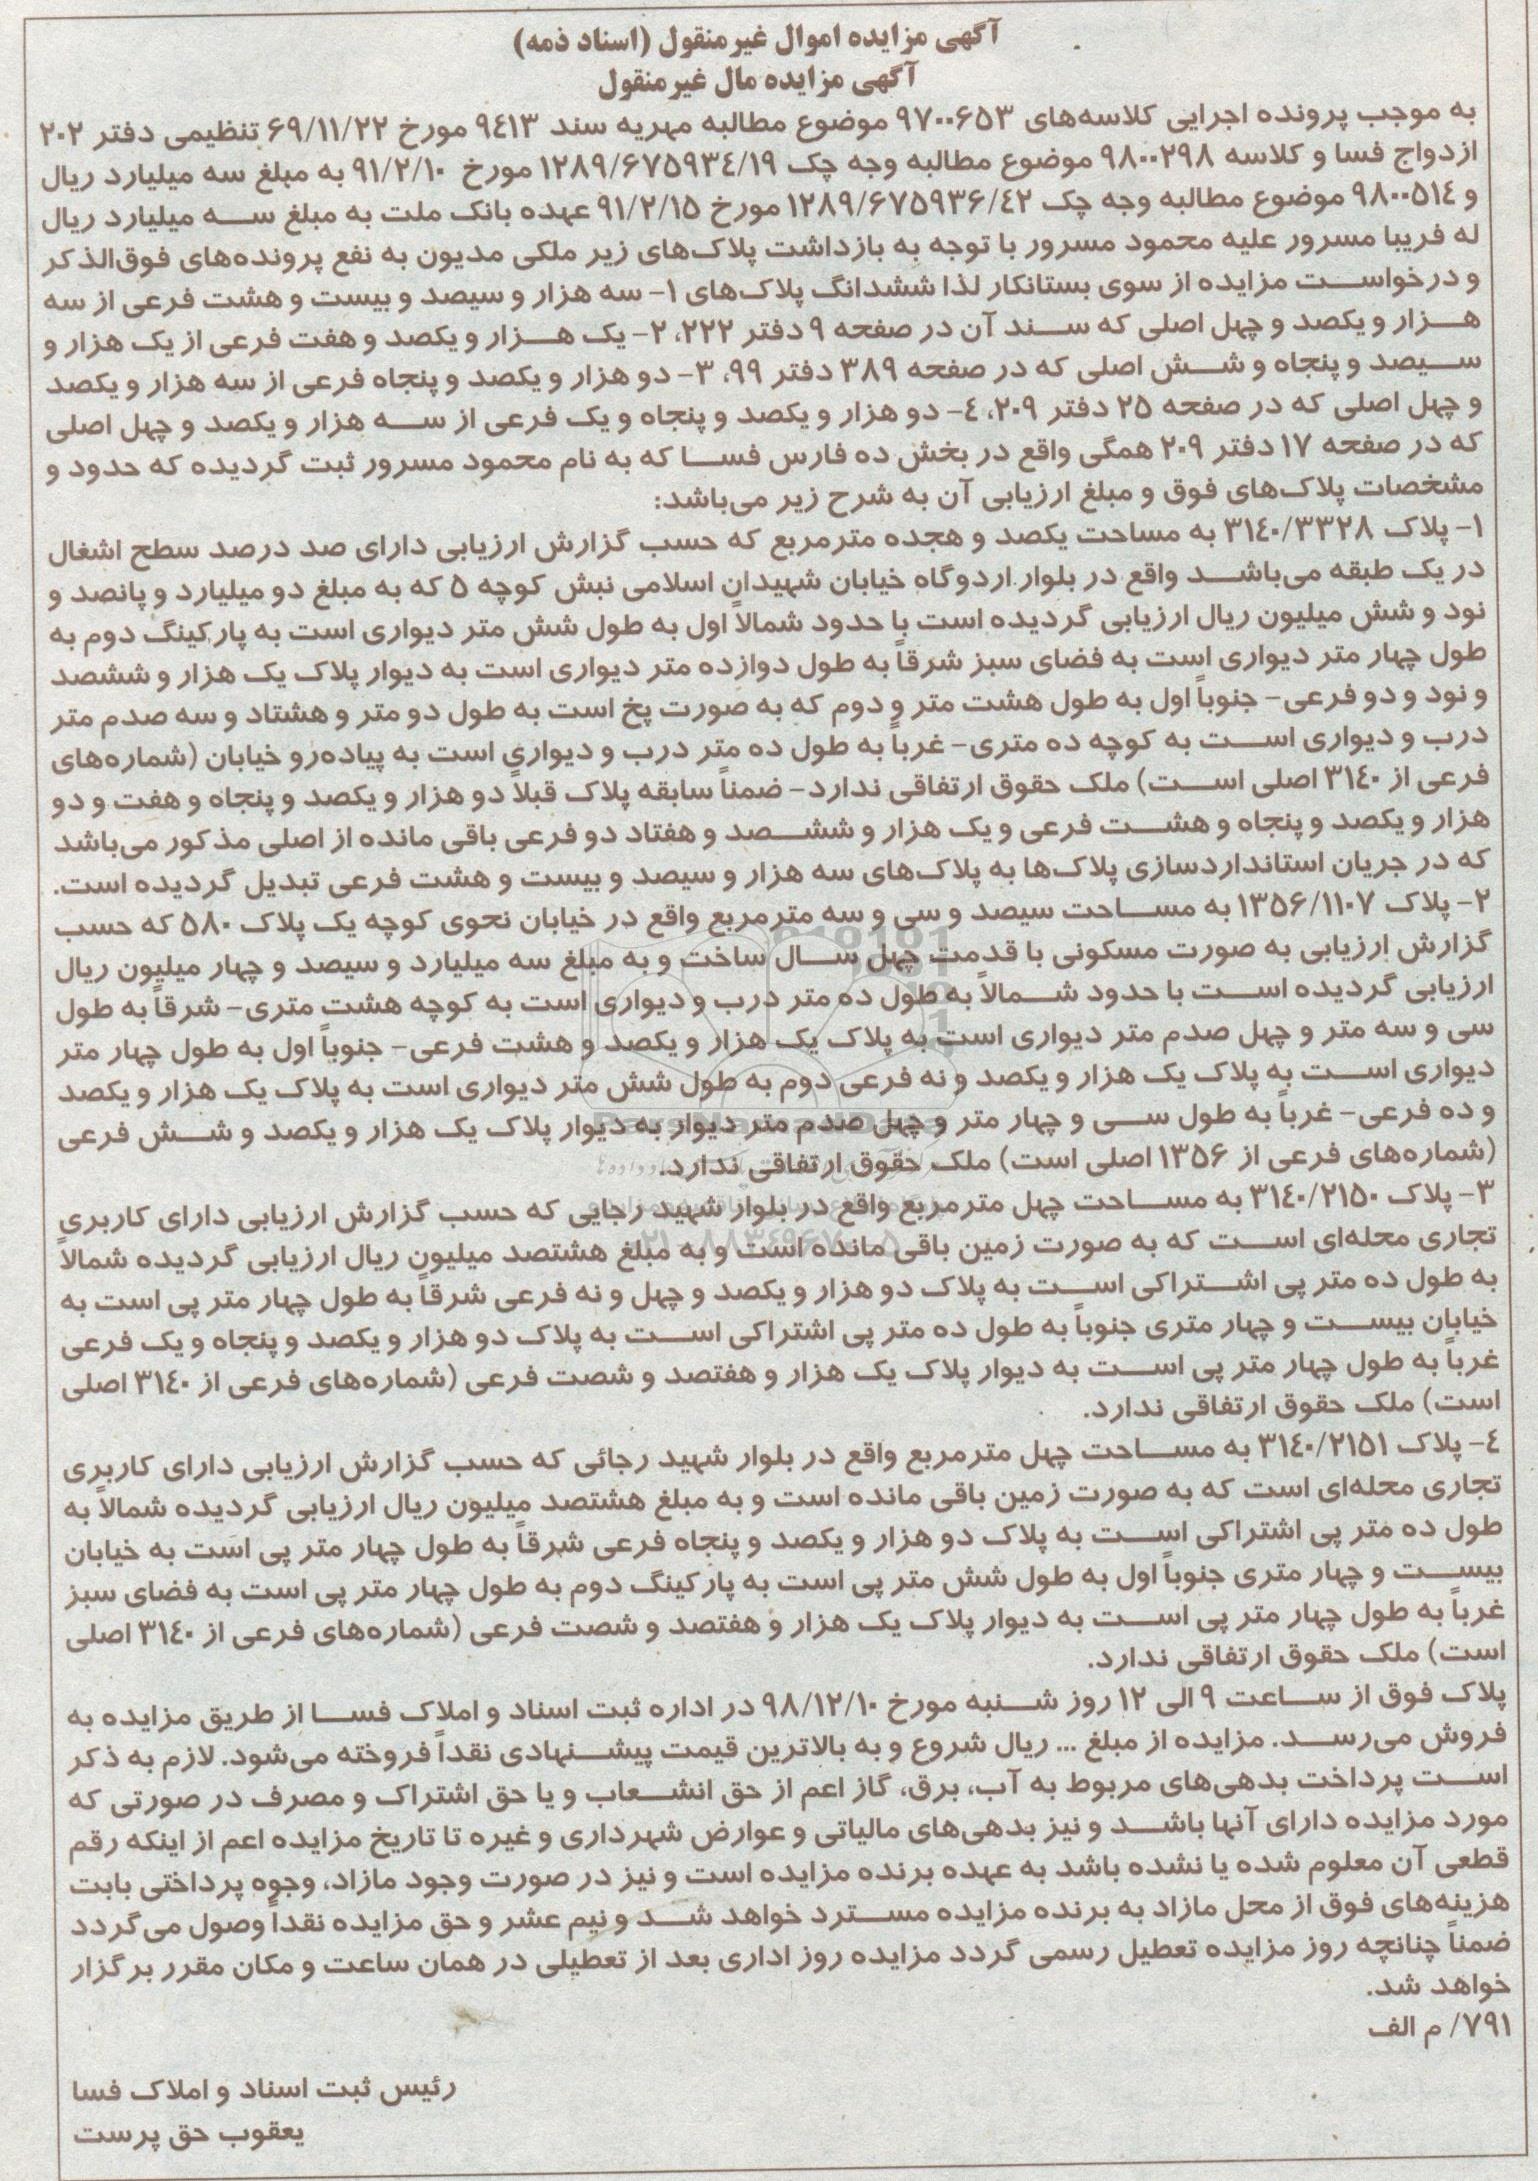 آگهی مزایده اموال غیرمنقول (اسناد ذمه)
آگهی مزایده مال غیرمنقول
به موجب پرونده اجرایی کلاسه‌های ۹۷۰۰۶۵۳ موضوع مطالبه مهریه سند ۹۴۱۳ مورخ ۶۹/۱۱/۲۲ تنظیمی دفتر ۲۰۲
ازدواج فسا و کلاسه ۹۸۰۰۲۹۸ موضوع مطالبه وجه چک ۱۲۸۹/۶۷۵۹۳۴/۱۹ مورخ ۹۱/۲/۱۰ به مبلغ سه میلیارد ریال
و ۹۸۰۰۵۱۴ موضوع مطالبه وجه چک ۱۲۸۹/۶۷۵۹۳۶/۴۲ مورخ ۹۱/۲/۱۵ عهده بانک ملت به مبلغ سه میلیارد ریال
له فریبا مسرور علیه محمود مسرور با توجه به بازداشت پلاک‌های زیر ملکی مدیون به نفع پرونده‌های فوق‌الذکر
و درخواست مزایده از سوی بستانکار لذا ششدانگ پلاک‌های ۱- سه هزار و سیصد و بیست و هشت فرعی از سه
هزار و یکصد و چهل اصلی که سند آن در صفحه ۹ دفتر ۲۲۲، ۲- یک هزار و یکصد و هفت فرعی از یک هزار و
سیصد و پنجاه و شش اصلی که در صفحه ۳۸۹ دفتر ۹۹، ۳- دو هزار و یکصد و پنجاه فرعی از سه هزار و یکصد
و چهل اصلی که در صفحه ۲۵ دفتر ۲۰۹، ۴- دو هزار و یکصد و پنجاه و یک فرعی از سه هزار و یکصد و چهل اصلی
که در صفحه ۱۷ دفتر ۲۰۹ همگی واقع در بخش ده فارس فسا که به نام محمود مسرور ثبت گردیده که حدود و
مشخصات پلاک‌های فوق و مبلغ ارزیابی آن به شرح زیر می‌باشد:
۱- پلاک ۳۱۴۰/۳۳۲۸ به مساحت یکصد و هجده مترمربع که حسب گزارش ارزیابی دارای صد درصد سطح اشغال
در یک طبقه می‌باشد واقع در بلوار اردوگاه خیابان شهیدان اسلامی نبش کوچه ۵ که به مبلغ دو میلیارد و پانصد و
نود و شش میلیون ریال ارزیابی گردیده است با حدود شمالاً اول به طول شش متر دیواری است به پارکینگ دوم به
طول چهار متر دیواری است به فضای سبز شرقاً به طول دوازده متر دیواری است به دیوار پلاک یک هزار و ششصد
و نود و دو فرعی- جنوباً اول به طول هشت متر و دوم که به صورت پخ است به طول دو متر و هشتاد و سه صدم متر
درب و دیواری است به کوچه ده متری- غرباً به طول ده متر درب و دیواری است به پیاده‌رو خیابان (شماره‌های
فرعی از ۳۱۴۰ اصلی است) ملک حقوق ارتفاقی ندارد- ضمناً سابقه پلاک قبلاً دو هزار و یکصد و پنجاه و هفت و دو
هزار و یکصد و پنجاه و هشت فرعی و یک هزار و ششصد و هفتاد دو فرعی باقی مانده از اصلی مذکور می‌باشد
که در جریان استانداردسازی پلاک‌ها به پلاک‌های سه هزار و سیصد و بیست و هشت فرعی تبدیل گردیده است.
۲- پلاک ۱۳۵۶/۱۱۰۷ به مساحت سیصد و سی و سه مترمربع واقع در خیابان نحوی کوچه یک پلاک ۵۸۰ که حسب
گزارش ارزیابی به صورت مسکونی با قدمت چهل سال ساخت و به مبلغ سه میلیارد و سیصد و چهار میلیون ریال
ارزیابی گردیده است با حدود شمالاً به طول ده متر درب و دیواری است به کوچه هشت متری- شرقاً به طول
سی و سه متر و چهل صدم متر دیواری است به پلاک یک هزار و یکصد و هشت فرعی- جنوباً اول به طول چهار متر
دیواری است به پلاک یک هزار و یکصد و نه فرعی دوم به طول شش متر دیواری است به پلاک یک هزار و یکصد
و ده فرعی- غرباً به طول سی و چهار متر و چهل صدم متر دیوار به دیوار پلاک یک هزار و یکصد و شش فرعی
(شماره‌های فرعی از ۱۳۵۶ اصلی است) ملک حقوق ارتفاقی ندارد.
۳- پلاک ۳۱۴۰/۲۱۵۰ به مساحت چهل مترمربع واقع در بلوار شهید رجایی که حسب گزارش ارزیابی دارای کاربری
تجاری محله‌ای است که به صورت زمین باقی مانده است و به مبلغ هشتصد میلیون ریال ارزیابی گردیده شمالاً
به طول ده متر پی اشتراکی است به پلاک دو هزار و یکصد و چهل و نه فرعی شرقاً به طول چهار متر پی است به
خیابان بیست و چهار متری جنوباً به طول ده متر پی اشتراکی است به پلاک دو هزار و یکصد و پنجاه و یک فرعی
غرباً به طول چهار متر پی است به دیوار پلاک یک هزار و هفتصد و شصت فرعی (شماره‌های فرعی از ۳۱۴۰ اصلی
است) ملک حقوق ارتفاقی ندارد.
۴- پلاک ۳۱۴۰/۲۱۵۱ به مساحت چهل مترمربع واقع در بلوار شهید رجائی که حسب گزارش ارزیابی دارای کاربری
تجاری محله‌ای است که به صورت زمین باقی مانده است و به مبلغ هشتصد میلیون ریال ارزیابی گردیده شمالاً به
طول ده متر پی اشتراکی است به پلاک دو هزار و یکصد و پنجاه فرعی شرقاً به طول چهار متر پی است به خیابان
بیست و چهار متری جنوباً اول به طول شش متر پی است به پارکینگ دوم به طول چهار متر پی است به فضای سبز
غرباً به طول چهار متر پی است به دیوار پلاک یک هزار و هفتصد و شصت فرعی (شماره‌های فرعی از ۳۱۴۰ اصلی
است) ملک حقوق ارتفاقی ندارد.
پلاک فوق از ساعت ۹ الی ۱۲ روز شنبه مورخ ۹۸/۱۲/۱۰ در اداره ثبت اسناد و املاک فسا از طریق مزایده به
فروش می‌رسد. مزایده از مبلغ ... ریال شروع و به بالاترین قیمت پیشنهادی نقداً فروخته می‌شود. لازم به ذکر
است پرداخت بدهی‌های مربوط به آب، برق، گاز اعم از حق انشعاب و یا حق اشتراک و مصرف در صورتی که
مورد مزایده دارای آنها باشد و نیز بدهی‌های مالیاتی و عوارض شهرداری و غیره تا تاریخ مزایده اعم از اینکه رقم
قطعی آن معلوم شده یا نشده باشد به عهده برنده مزایده است و نیز در صورت وجود مازاد، وجوه پرداختی بابت
هزینه‌های فوق از محل مازاد به برنده مزایده مسترد خواهد شد و نیم عشر و حق مزایده نقداً وصول می‌گردد
ضمناً چنانچه روز مزایده تعطیل رسمی گردد مزایده روز اداری بعد از تعطیلی در همان ساعت و مکان مقرر برگزار
خواهد شد.
۷۹۱/ م الف
رئیس ثبت اسناد و املاک فسا
یعقوب حق پرست